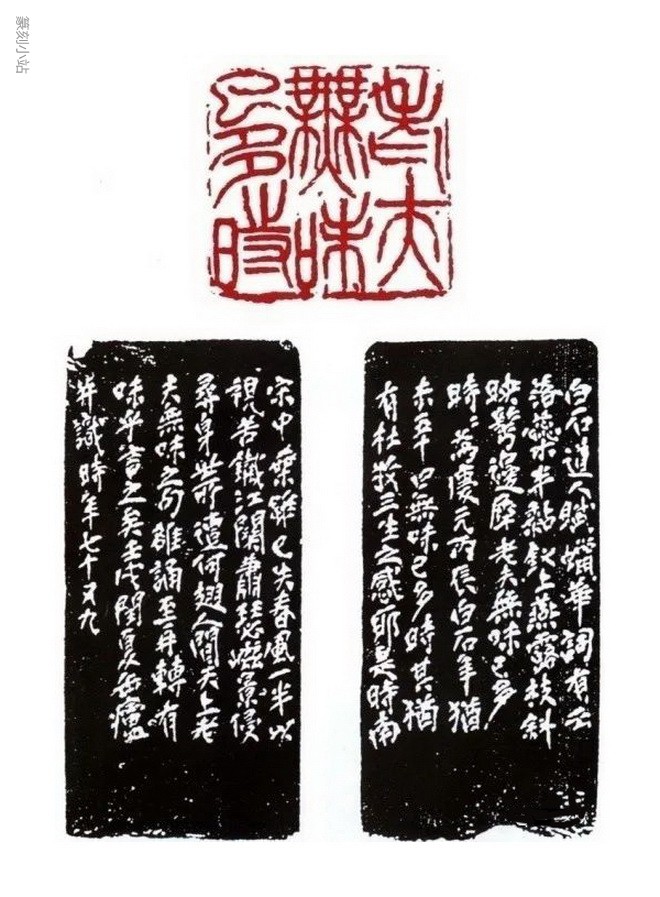 篆刻小站
老夫
無味
已多時
白石道人賦蠟華詞有云
落蘂半黏釵上燕露枝斜
映鬢邊犀老夫無味已多
時々為慶元丙辰白石年猶
未五十曰無味已多時其猶
有杜牧三生之感耶是時南
宗中葉雖已失春風一半以
視苦鐵江關蕭瑟崦景侵
尋身世所遭何翅人間天上老
夫無味之句雖誦至再轉有
味乎言之矣壬戌閏夏缶廬
并識時年七十又九